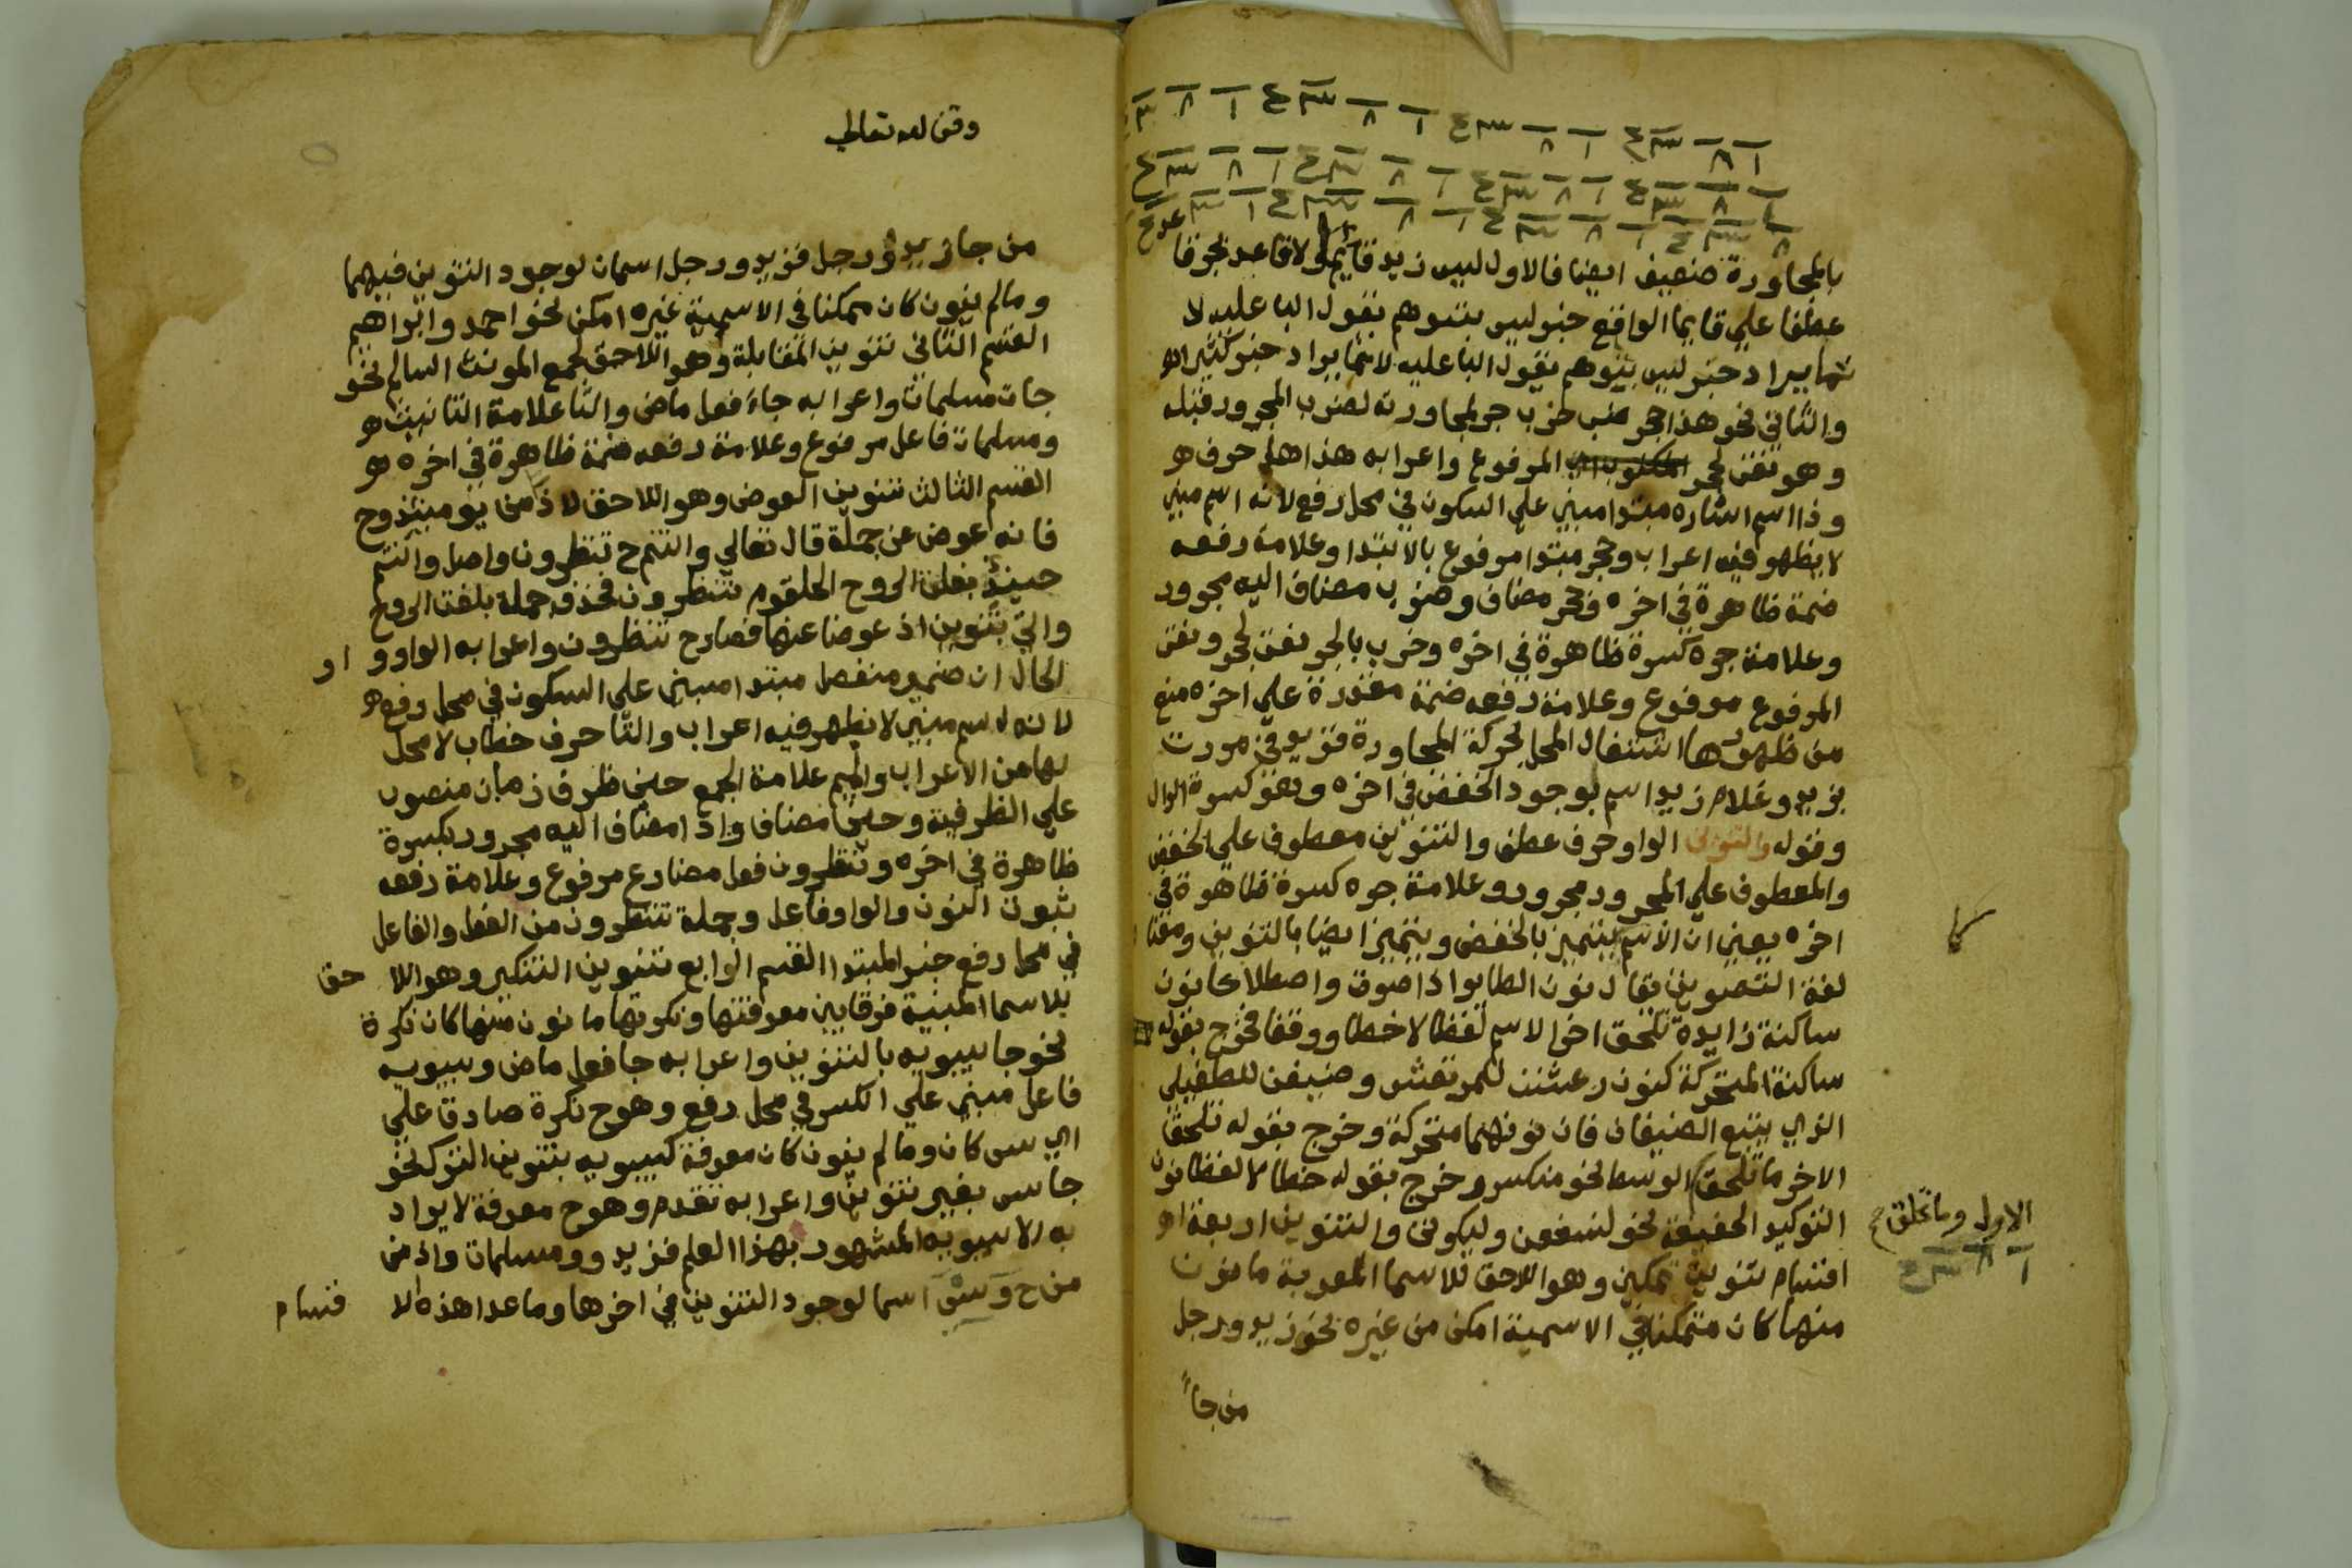 بالمجاورة ضعيف ايضا فالاول ليس زيد قايما ولا قاعد بجر قا
عطفا علي قايما الواقع خبر ليس بتوهم بقول البا عليه لا
نها يراد خبر ليس بتوهم بقول البا عليه لانها يراد خبر كثير اهـ
والثاني نحو هذا حجر ضب خرب جر لمجاورته لضرب المجرور قبله
وهو نعت لحجر المرفوع واعرابه هذا الها حرف
وذا اسم اشاره مبتدا مبني علي السكون في محل رفع لانه اسم مبني
لا يظهر فيه اعراب وحجر مبتدا مرفوع بالابتدا وعلامة رفعه
ضمة ظاهرة في اخره وحجر مضاف وضب مضاف اليه مجرور
وعلامة جره كسرة ظاهرة في اخره وخرب بالجر نعت لحجر ونعت
المرفوع مرفوع وعلامة رفعه ضمة مقدرة علي اخره منع
من ظهورها اشتغال المحل بحركة المجاورة فزيد في مررت
بزيد وغلام زيد اسم لوجود الخفض في اخره وهو كسرة الدال
وقوله والتنوين الواو حرف عطف والتنوين معطوف علي الخفض
والمعطوف علي المجرور مجرور وعلامة جره كسرة ظاهرة في
اخره يعني ان الاسم يتميز بالخفض ويتميز ايضا بالتنوين ومعنا
لغة التصويت يقال نون الطاير اذا صوت واصطلاحا نون
ساكنة زايدة تلحق اخر الاسم لفظا لا خطا ووقفا فخرج بقوله
ساكنة المتحركة كنون رعشنن للمرتعش وضيفن للطفيلي
الذي يتبع الضيفان فان نونهما متحركة وخرج بقوله تلحق
الاخر ما تلحق الوسط نحو منكسر وخرج بقوله خطا لا لفظا نون
التوكيد الخفيفة نحو لنسفعن وليكونن والتنوين اربعة
اقسام تنوين تمكين وهو اللاحق للاسما المعربة ما نون
منها كان متمكنا في الاسمية امكن من غيره نحو زيد ورجل
من جا
الاول وما علق
وقف لله تعالي
من جا زيد ورجل فزيد ورجل اسمان لوجود التنوين فيهما
وما لم ينون كان ممكنا في الاسمية غيره امكن نحو احمد وابراهيم
القسم الثاني تنوين المقابلة وهو اللاحق لجمع المونث السالم نحو
جات مسلمات واعرابه جاء فعل ماض والتا علامة التانيث
ومسلمات فاعل مرفوع وعلامة رفعه ضمة ظاهرة في اخره
القسم الثالث تنوين العوض وهو اللاحق لاذ من يومئذ وح
فانه عوض عن جملة قال تعالي وانتم ح تنظرون واصل وانتم
حينئذ بلغت الروح الحلقوم تنظرون فحذف جملة بلغت الروح
واتي بتنوين اذ عوضا عنها فصار ح تنظرون واعرابه الواو و او
الحال ان ضمير منفصل مبتدا مبني علي السكون في محل رفع
لانه اسم مبني لا يظهر فيه اعراب والتا حرف خطاب لا محل
لها من الاعراب والميم علامة الجمع حين ظرف زمان منصوب
علي الظرفية وحين مضاف واذ امضاف اليه مجرور بكسرة
ظاهرة في اخره وتنظرون فعل مضارع مرفوع وعلامة رفعه
ثبوت النون والواو فاعل وجملة تنظرون من الفعل والفاعل
في محل رفع خبر المبتدا القسم الرابع تنوين التنكير وهو اللا حق
بلاسما المبنية فرقا بين معرفتها ونكرتها ما نون منها كان نكرة
نحو جا سيبويه بالتنوين واعرابه جا فعل ماض وسيبويه
فاعل مبني علي الكسر في محل رفع وهو ح نكرة صادق علي
اي س كان وما لم ينون كان معرفة كسيبويه بتنوين الترك نحو
جا س بغير تنوين واعرابه تقدم وهو ح معرفة لا يراد
به الا سيبويه المشهور بهذا العلم فزيد ومسلمات واذ من
من ح وس اسما لوجود التنوين في اخرها وما عدا هذه الا قسام